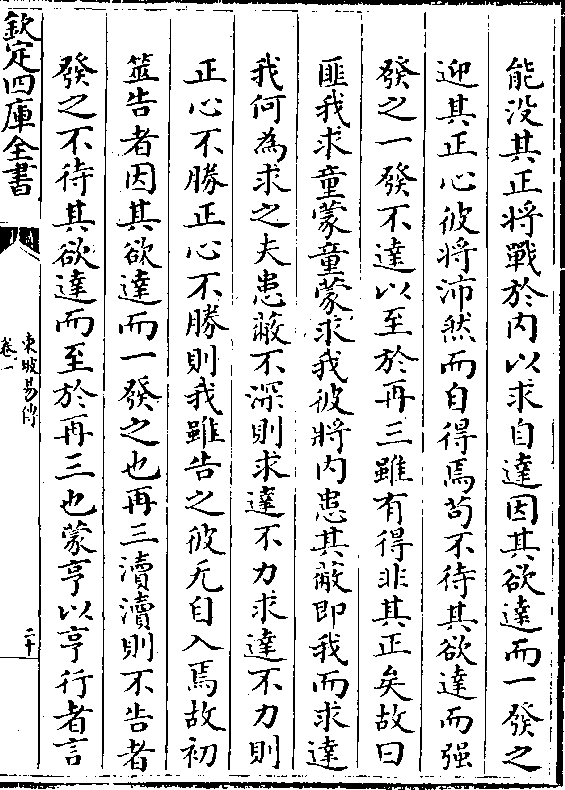 能没其正將戰於内以求自達因其欲達而一發之
迎其正心彼將沛然而自得焉茍不待其欲達而强
發之一發不達以至於再三雖有得非其正矣故曰
匪我求童蒙童蒙求我彼將内患其蔽即我而求達
我何為求之夫患蔽不深則求達不力求達不力則
正心不勝正心不勝則我雖告之彼无自入焉故初
筮告者因其欲達而一發之也再三瀆瀆則不告者
發之不待其欲達而至於再三也蒙亨以亨行者言
欽定四庫全書
東坡易傳
卷一
二十